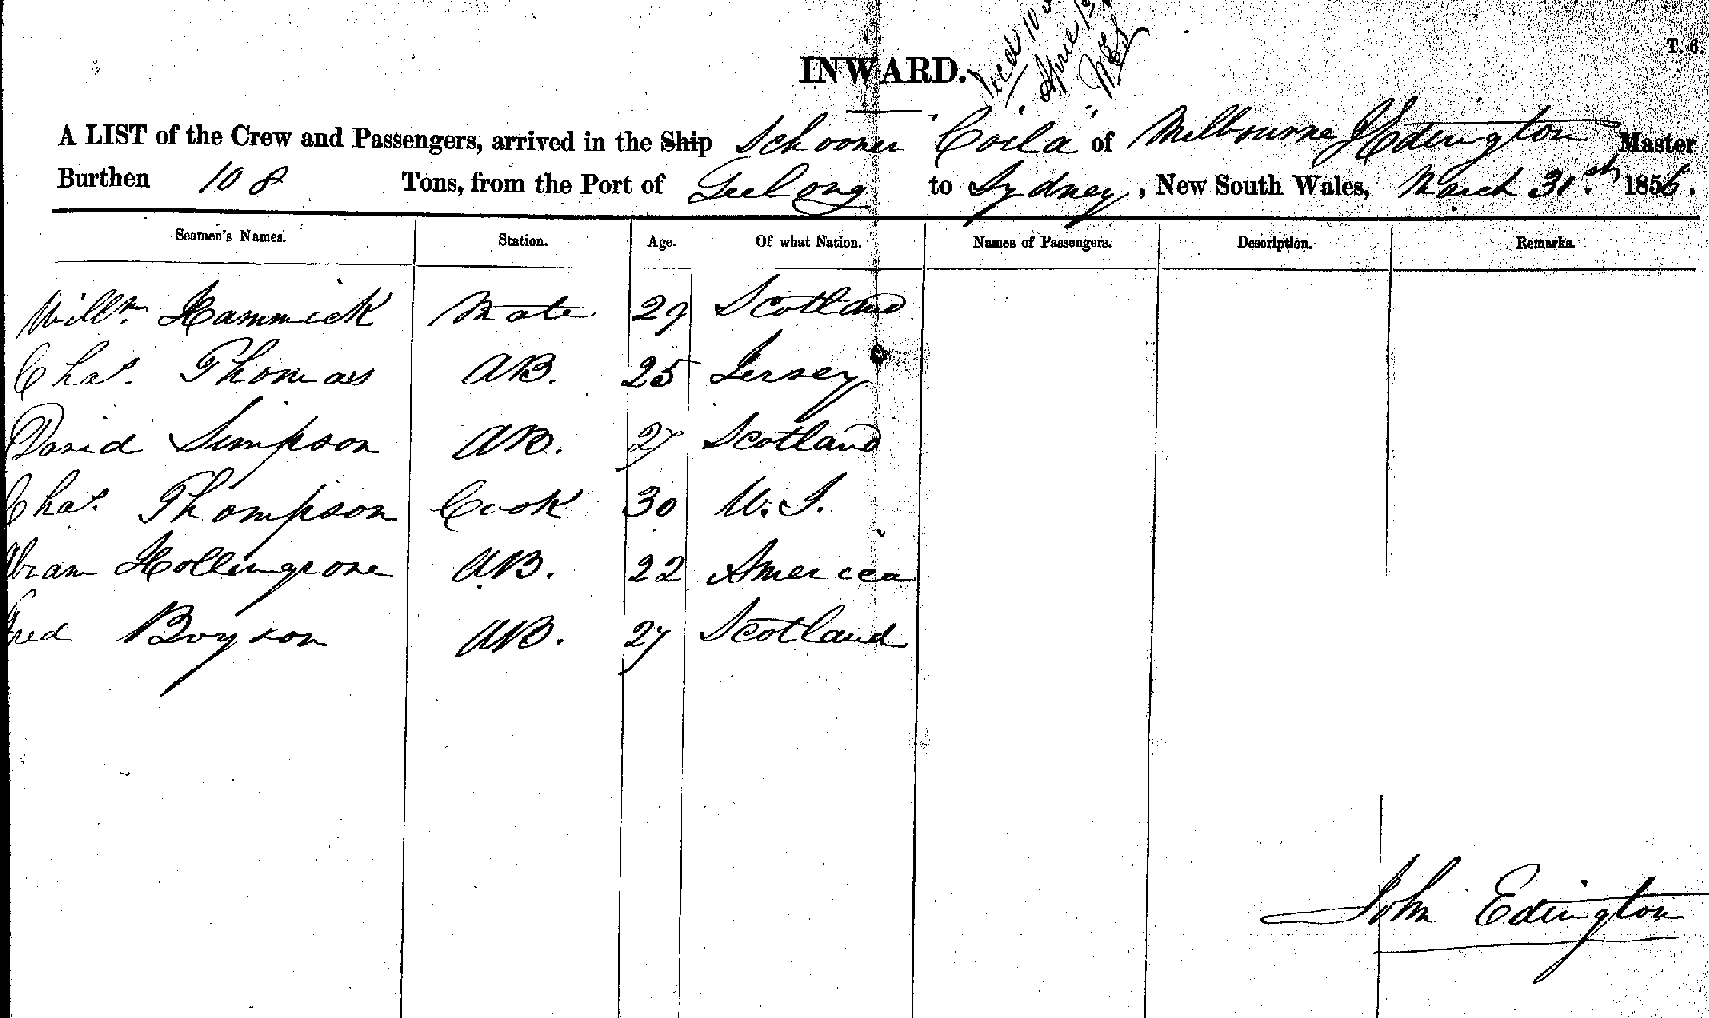 T. 6.
INWARD.
A LIST of the Crew and Passengers, arrived in the Ship Schooner "Coila" of Melbourne J Edington Master
Burthen 108 Tons, from the Port of Geelong to Sydney, New South Wales, March 31st 1856.
Seamen's Names. Station. Age. Of what Nation. Names of Passengers. Description. Remarks.
Willm Hammick Mate 29 Scotland
Chas. Thomas AB. 25 Jersey
David Simpson AB. 27 Scotland
Chas. Thompson Cook 30 W. I.
Abram AB. 22 America
Fred Boyson AB. 27 Scotland
John Edington